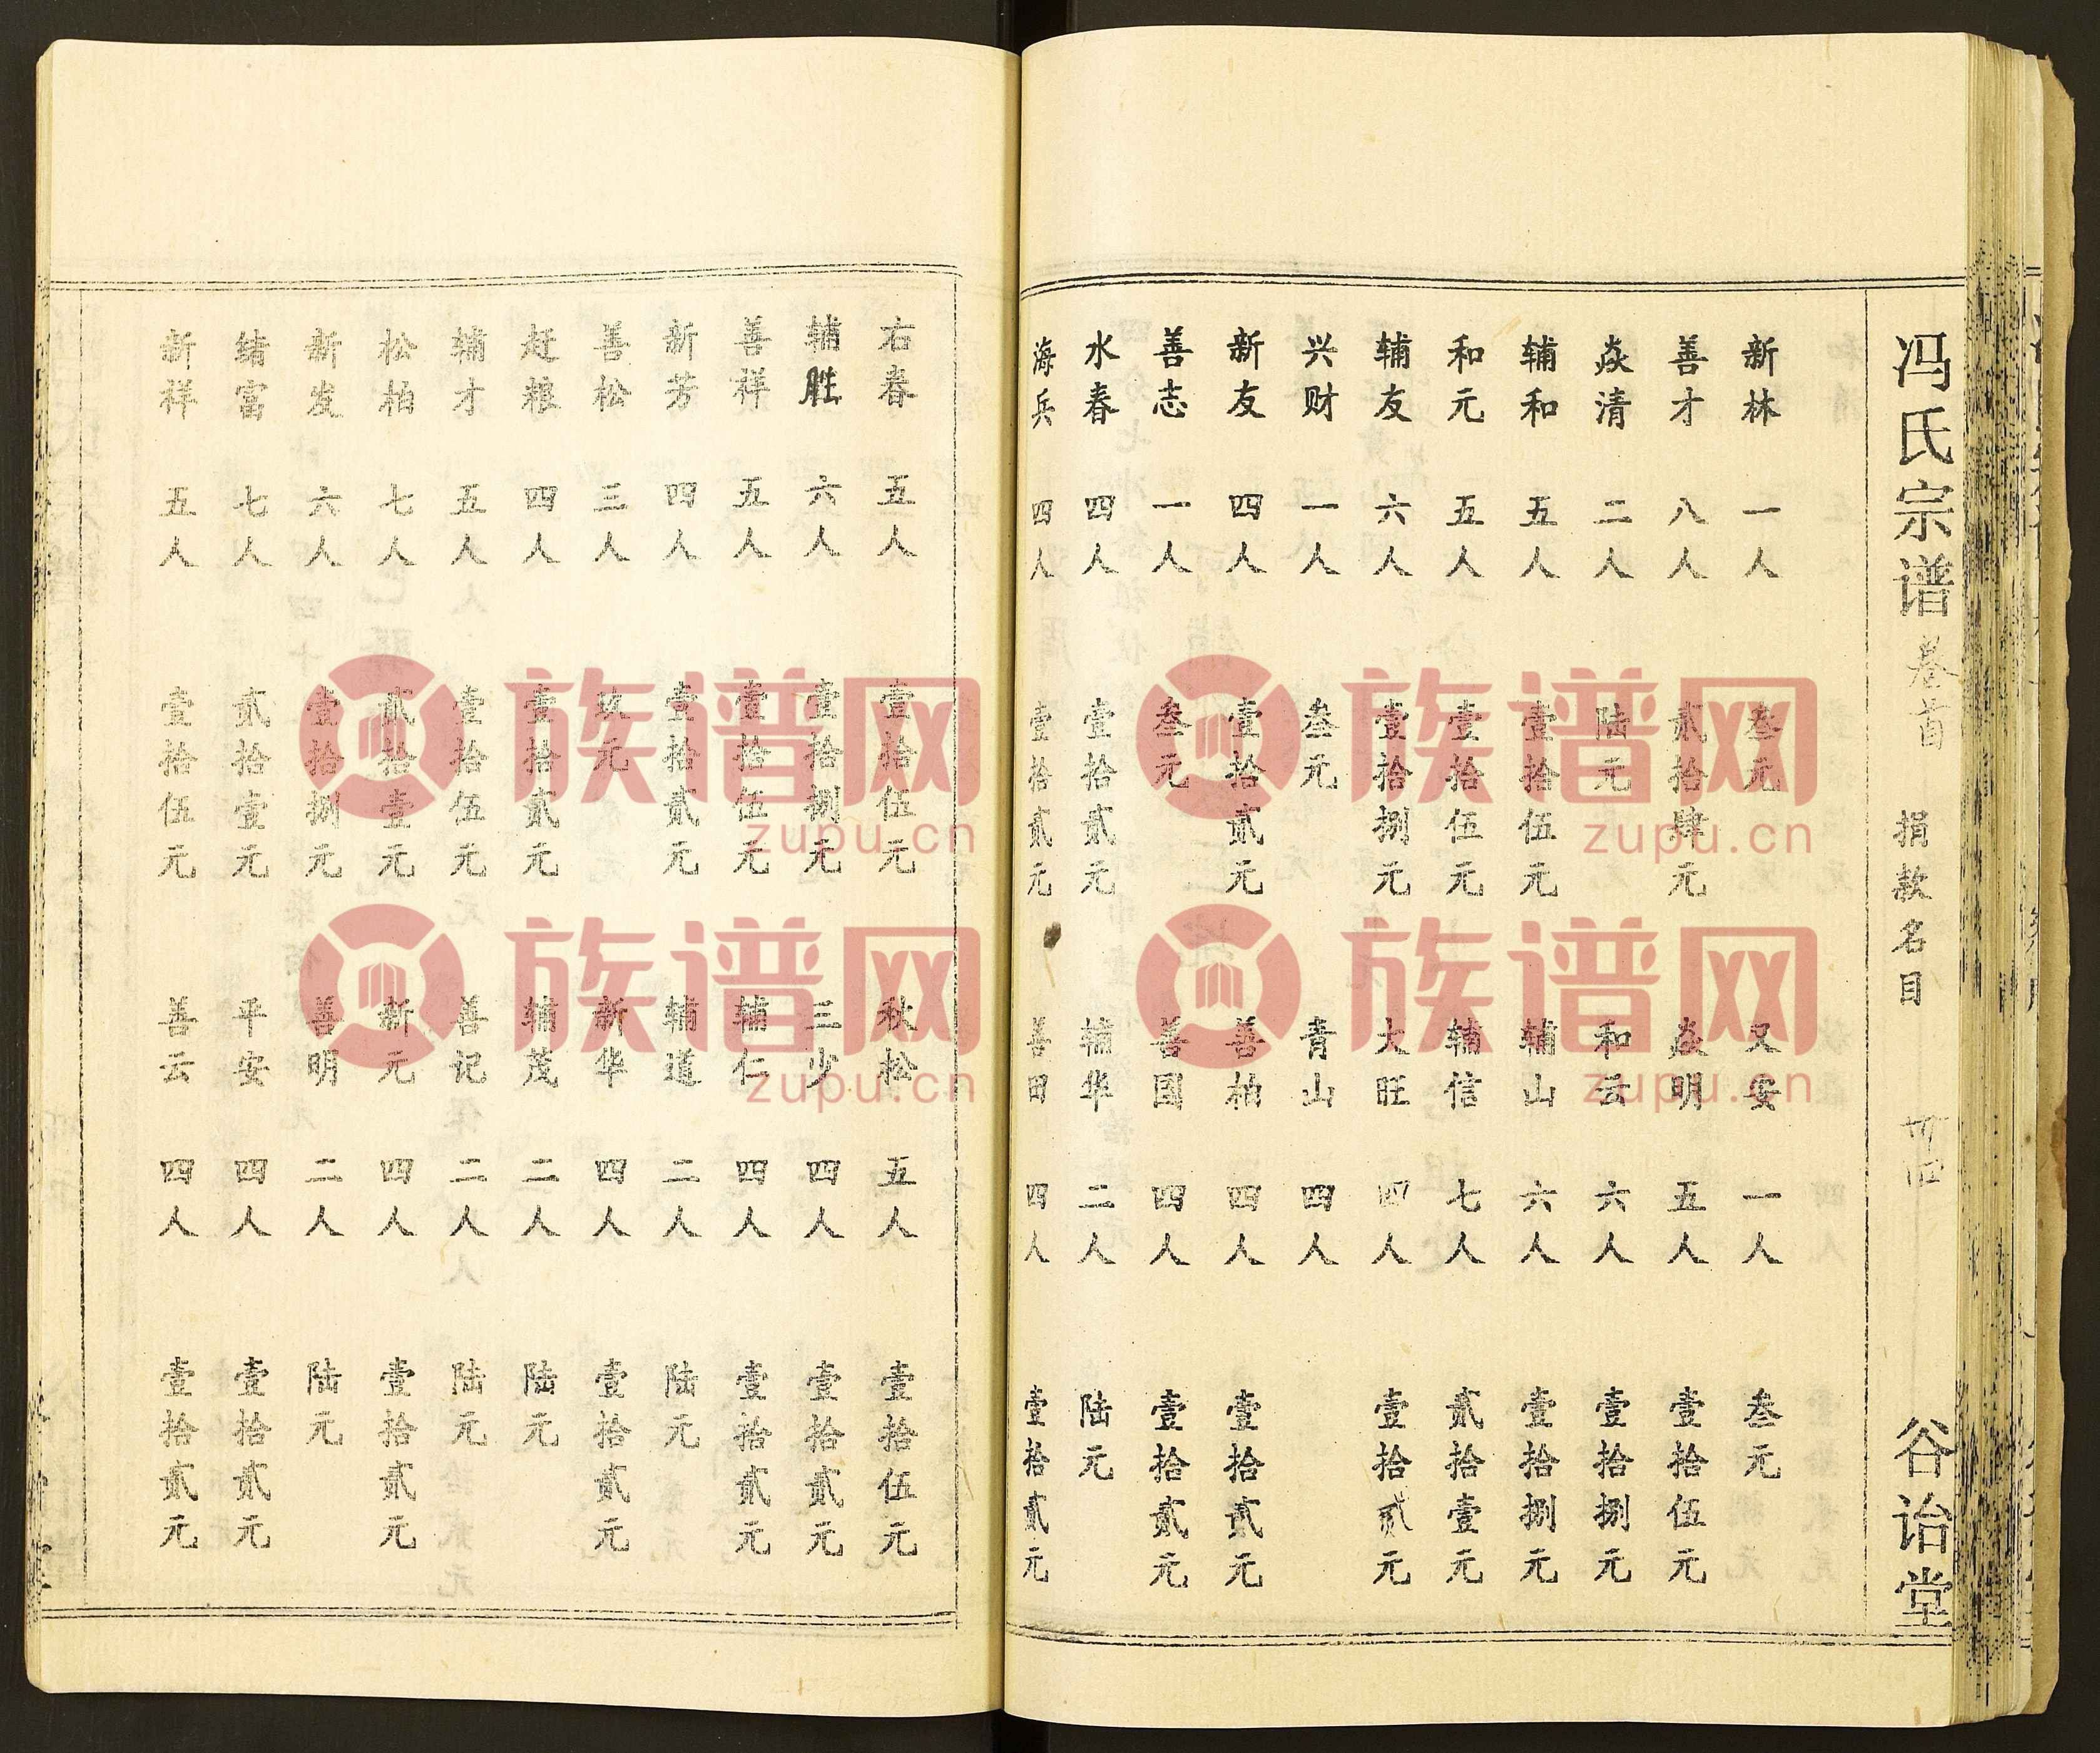 冯氏宗谱 卷首 捐款名目 卅四 谷诒堂
新林 一人 叁元 又安 一人 叁元
善才 八人 贰拾肆元 焱明 五人 壹拾伍元
焱清 二人 陆元 和云 六人 壹拾捌元
辅和 五人 壹拾伍元 辅山 六人 壹拾捌元
和元 五人 壹拾伍元 辅信 七人 贰拾壹元
辅友 六人 壹拾捌元 大旺 四人 壹拾贰元
兴财 一人 叁元 青山 四人
新友 四人 壹拾贰元 善柏 四人 壹拾贰元
善志 一人 叁元 善国 四人 壹拾贰元
水春 四人 壹拾贰元 辅华 二人 陆元
海兵 四人 壹拾贰元 善田 四人 壹拾贰元
右春 五人 壹拾伍元 秋松 五人 壹拾伍元
辅胜 六人 壹拾捌元 三少 四人 壹拾贰元
善祥 五人 壹拾伍元 辅仁 四人 壹拾贰元
新芳 四人 壹拾贰元 辅道 二人 陆元
善松 三人 玖元 新华 四人 壹拾贰元
赶粮 四人 壹拾贰元 辅茂 二人 陆元
辅才 五人 壹拾伍元 善记 二人 陆元
松柏 七人 贰拾壹元 新元 四人 壹拾贰元
新发 六人 壹拾捌元 善明 二人 陆元
绪富 七人 贰拾壹元 平安 四人 壹拾贰元
新祥 五人 壹拾伍元 善云 四人 壹拾贰元
族谱网
zupu.cn
族谱网
zupu.cn
族谱网
zupu.cn
族谱网
zupu.cn